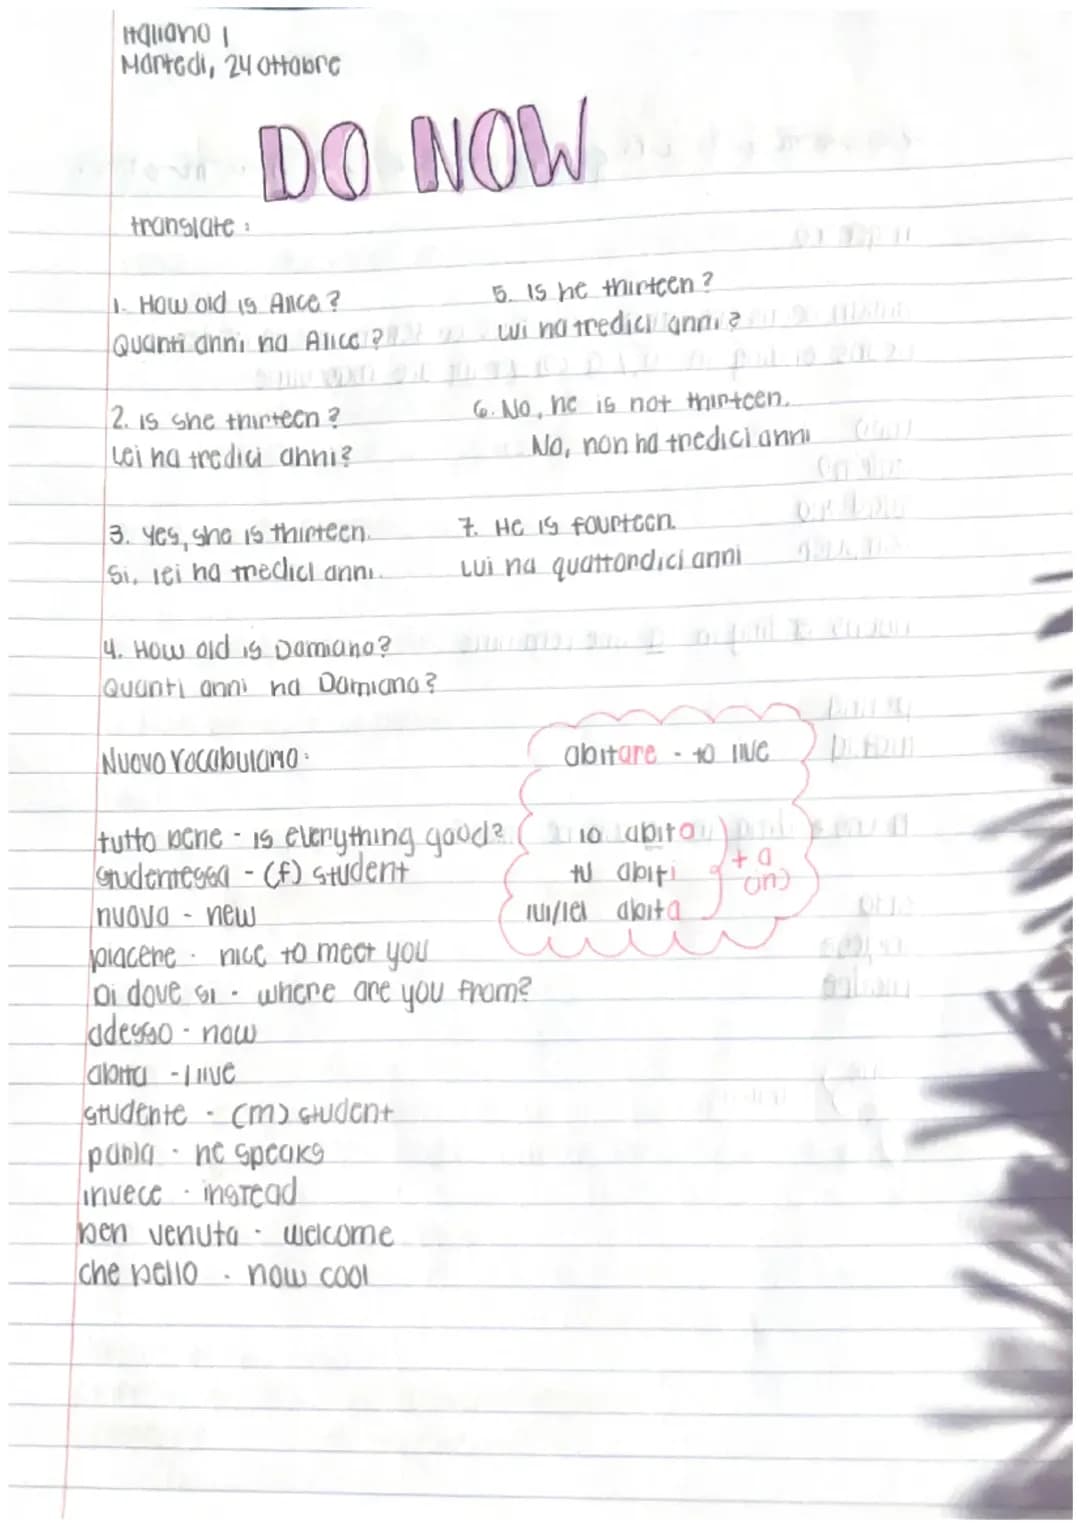 Italiano 1
Martedi, 24 ottobre
DO NOW
translate:
1. How old is Alice?
Quanti anni ha Alice?
2. is she thirteen?
Lei ha tredici anni?
3. yes, she is thirteen.
Si, lei ha tredici anni.
4. How old is Damiano?
Quanti anni ha Damiano?
5. Is he thirteen?
Lui ha tredici anni?
6. No, he is not thirteen.
No, non ha tredici anni
7. He is fourteen.
Lui ha quattordici anni
Nuovo vocabulario:
tutto bene - is everything good?
studentessa - (f) student
nuova - new
piacere - nice to meet you
Di dove si - where are you from?
adesso - now
abita - live
studente - (m) student
parla - he speaks
invece - instead
ben venuta - welcome
che bello - how cool
abitare - to live
io abito
tu abiti
lui/lei abita
+ a
(in)